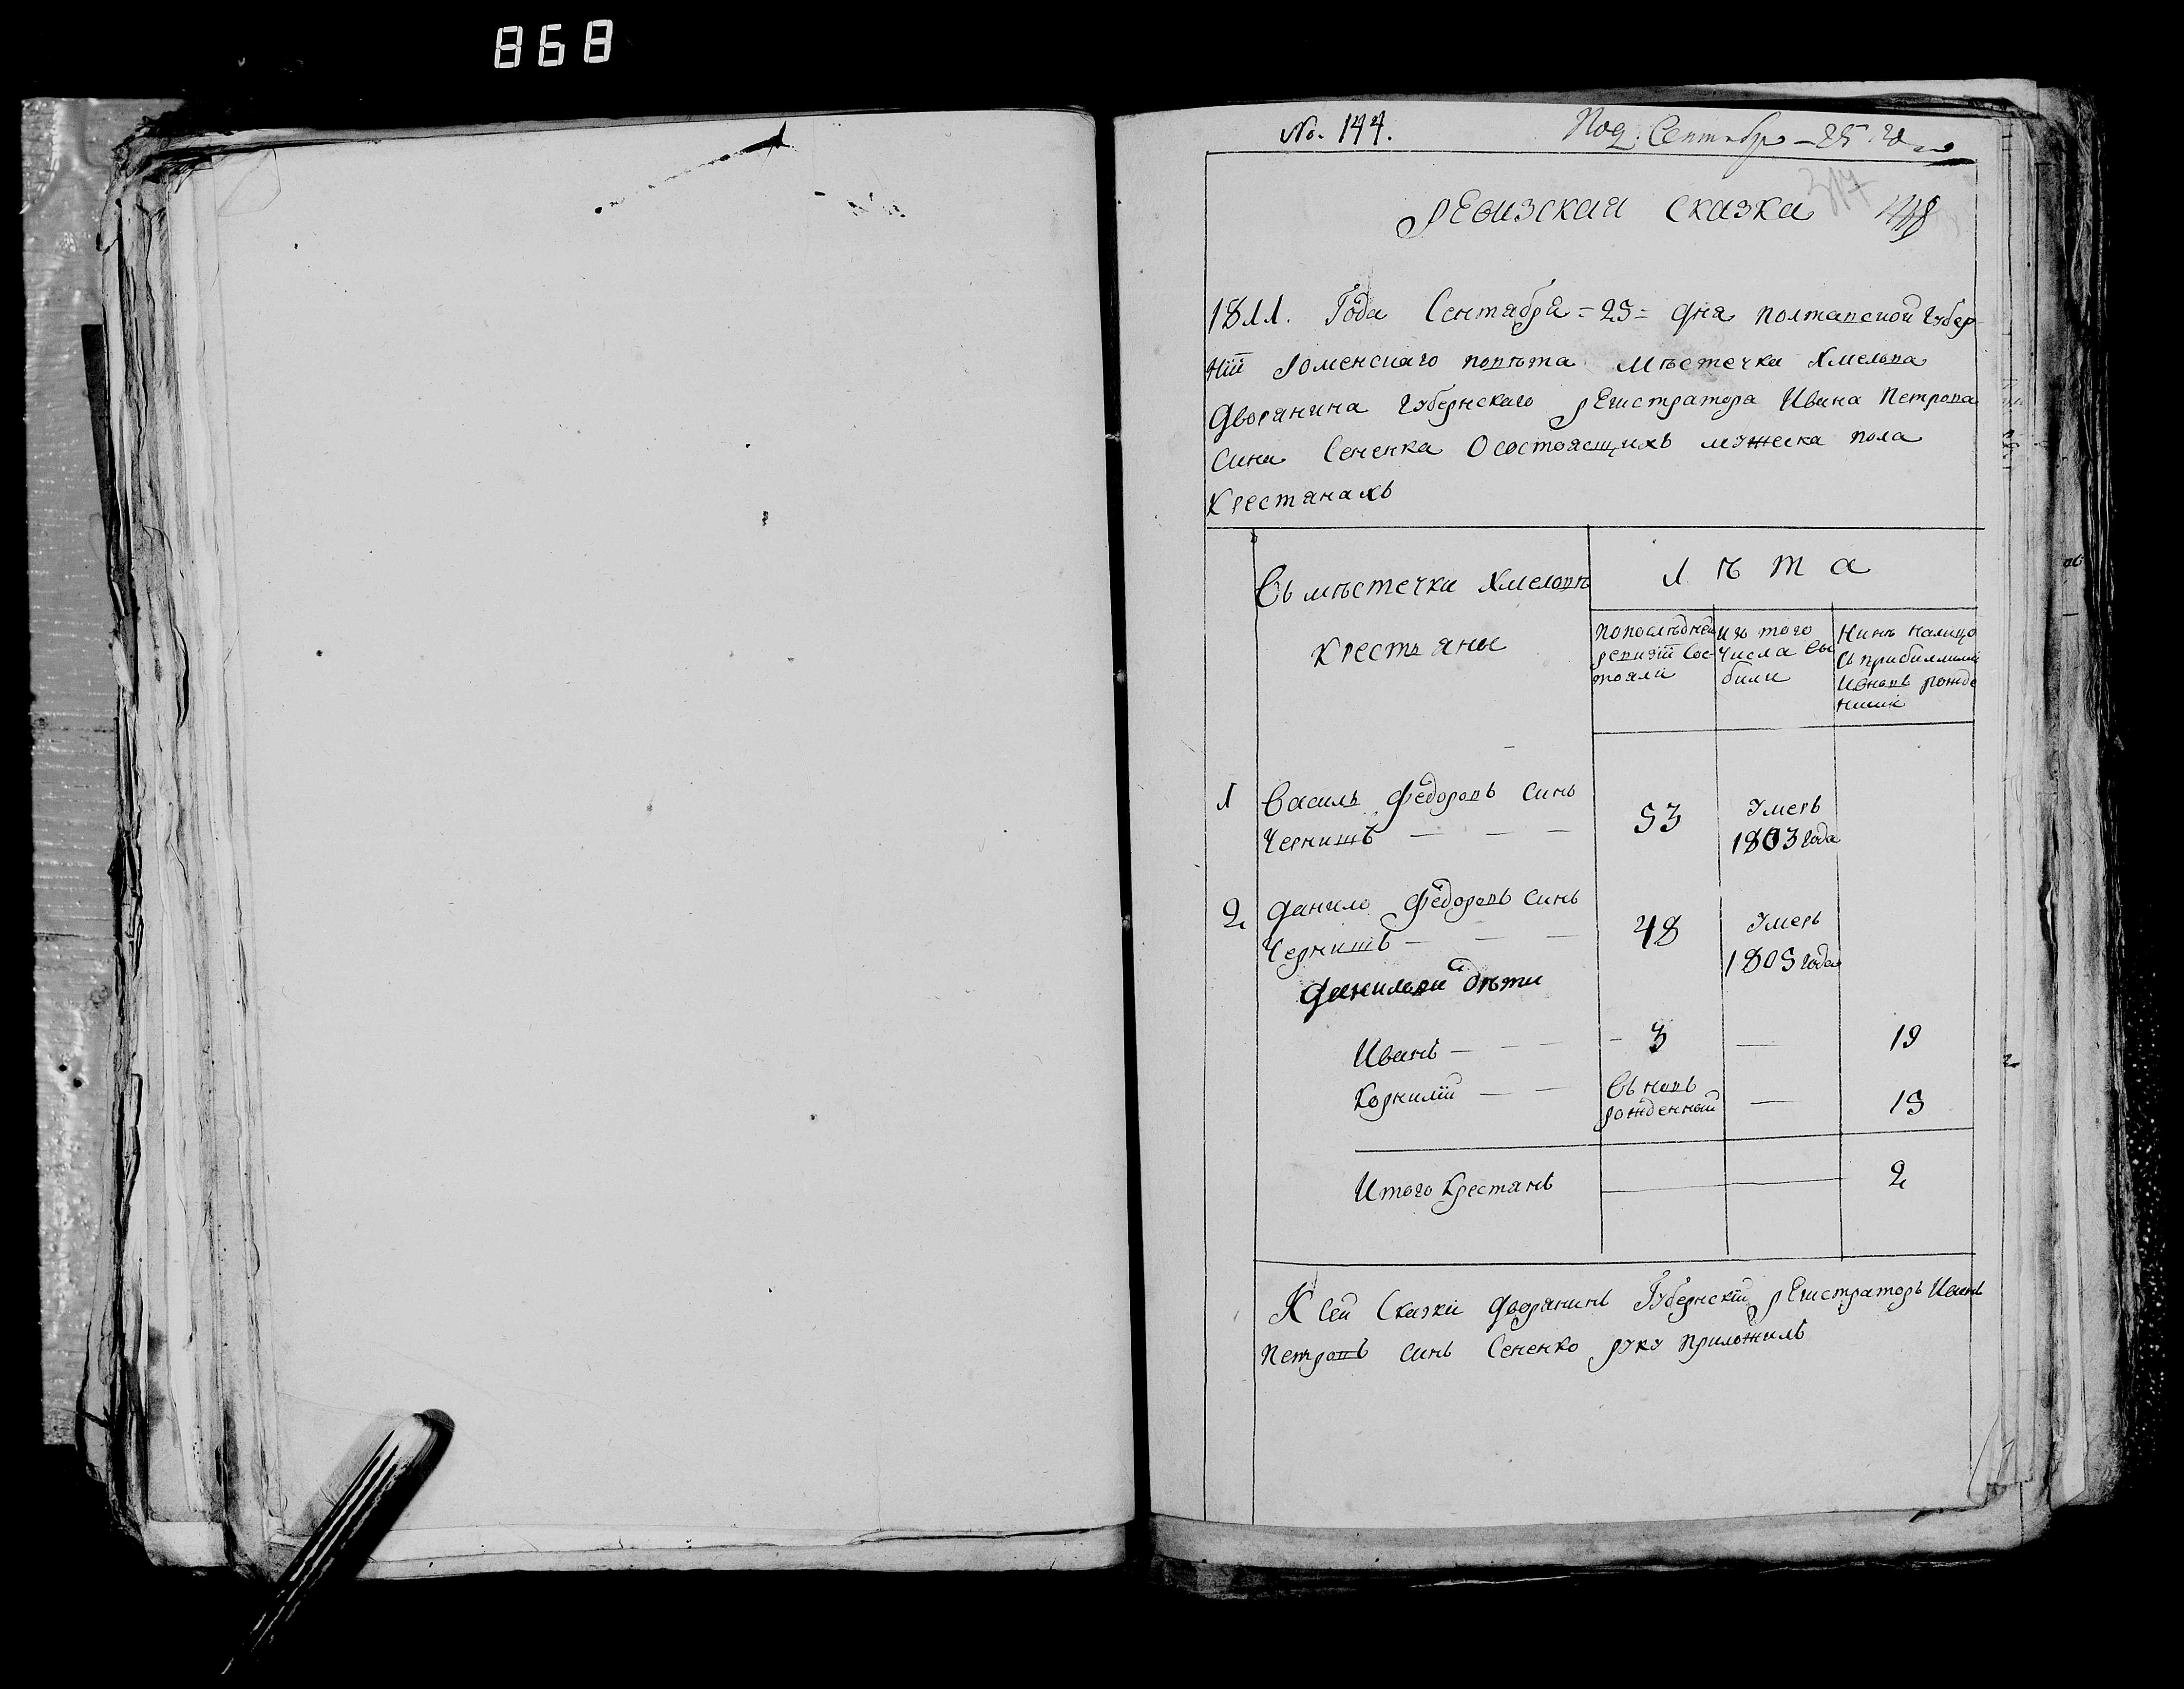 868
No. 144.
Под. Сентября - 25 дня
317
Ревизская сказка
1811. Года Сентября = 25 = дня полтавской губер-
ніи Роменскаго повѣта мѣстечка Хмелѡва
дворянина губернскаго регистратора Ивана Петрова
Сина Сененка О состоящихъ мужеска пола
Крестянахъ
Въ мѣстечки Хмеловѣ
лѣта
крестьяны
по последней
ревизіи сос-
тояли
из того
числа вы
били
Нинѣ налицо
съ прибилыми
и вновь рожде
ними
1 Василь Федоровъ Синъ
Чернишъ — — — 53 Умеръ 1803 года
2 Данило Федоровъ Синъ
Чернишъ — — — 48 Умеръ 1805 года
Даниловы дѣти
Иванъ — — — 3 — 19
Корнилій — — Въновь рожденный — 15
Итого Крестянъ — — 2
К сей Сказки дворянинъ Губернскій регистраторъ Иванъ
Петровъ синъ Сененко руку приложилъ